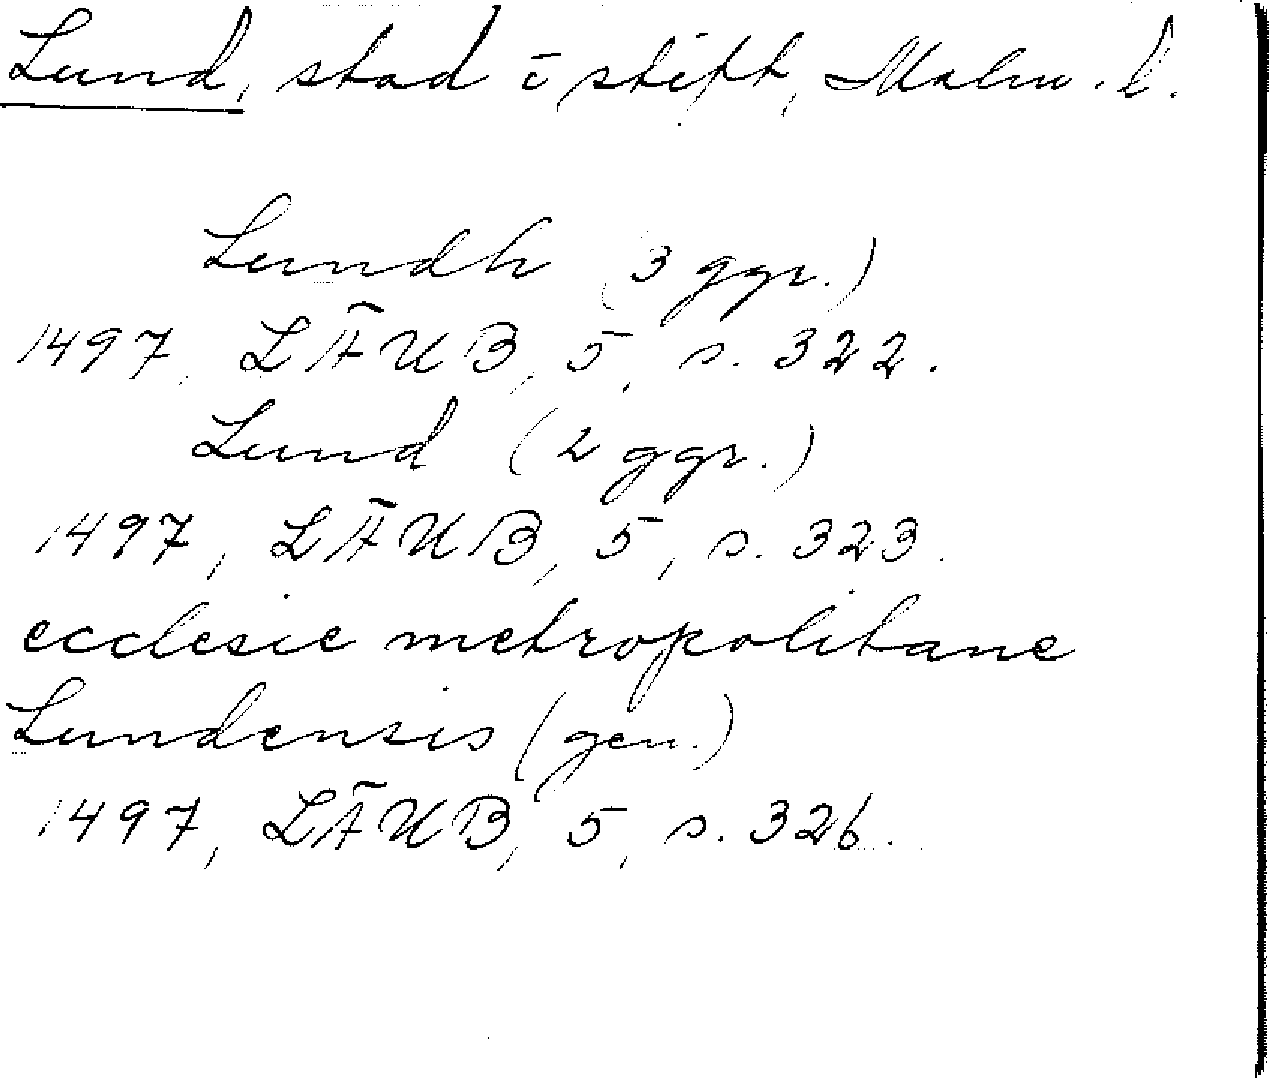 Lund, stad o. stift, Malm. l.
Lundh (3 ggr.)
1497, LÄUB, 5, s. 322.
Lund (2 ggr.)
1497, LÄUB, 5, s. 323.
ecclesie metropolitane
Lundensis (gen.)
1497, LÄUB, 5, s. 326.